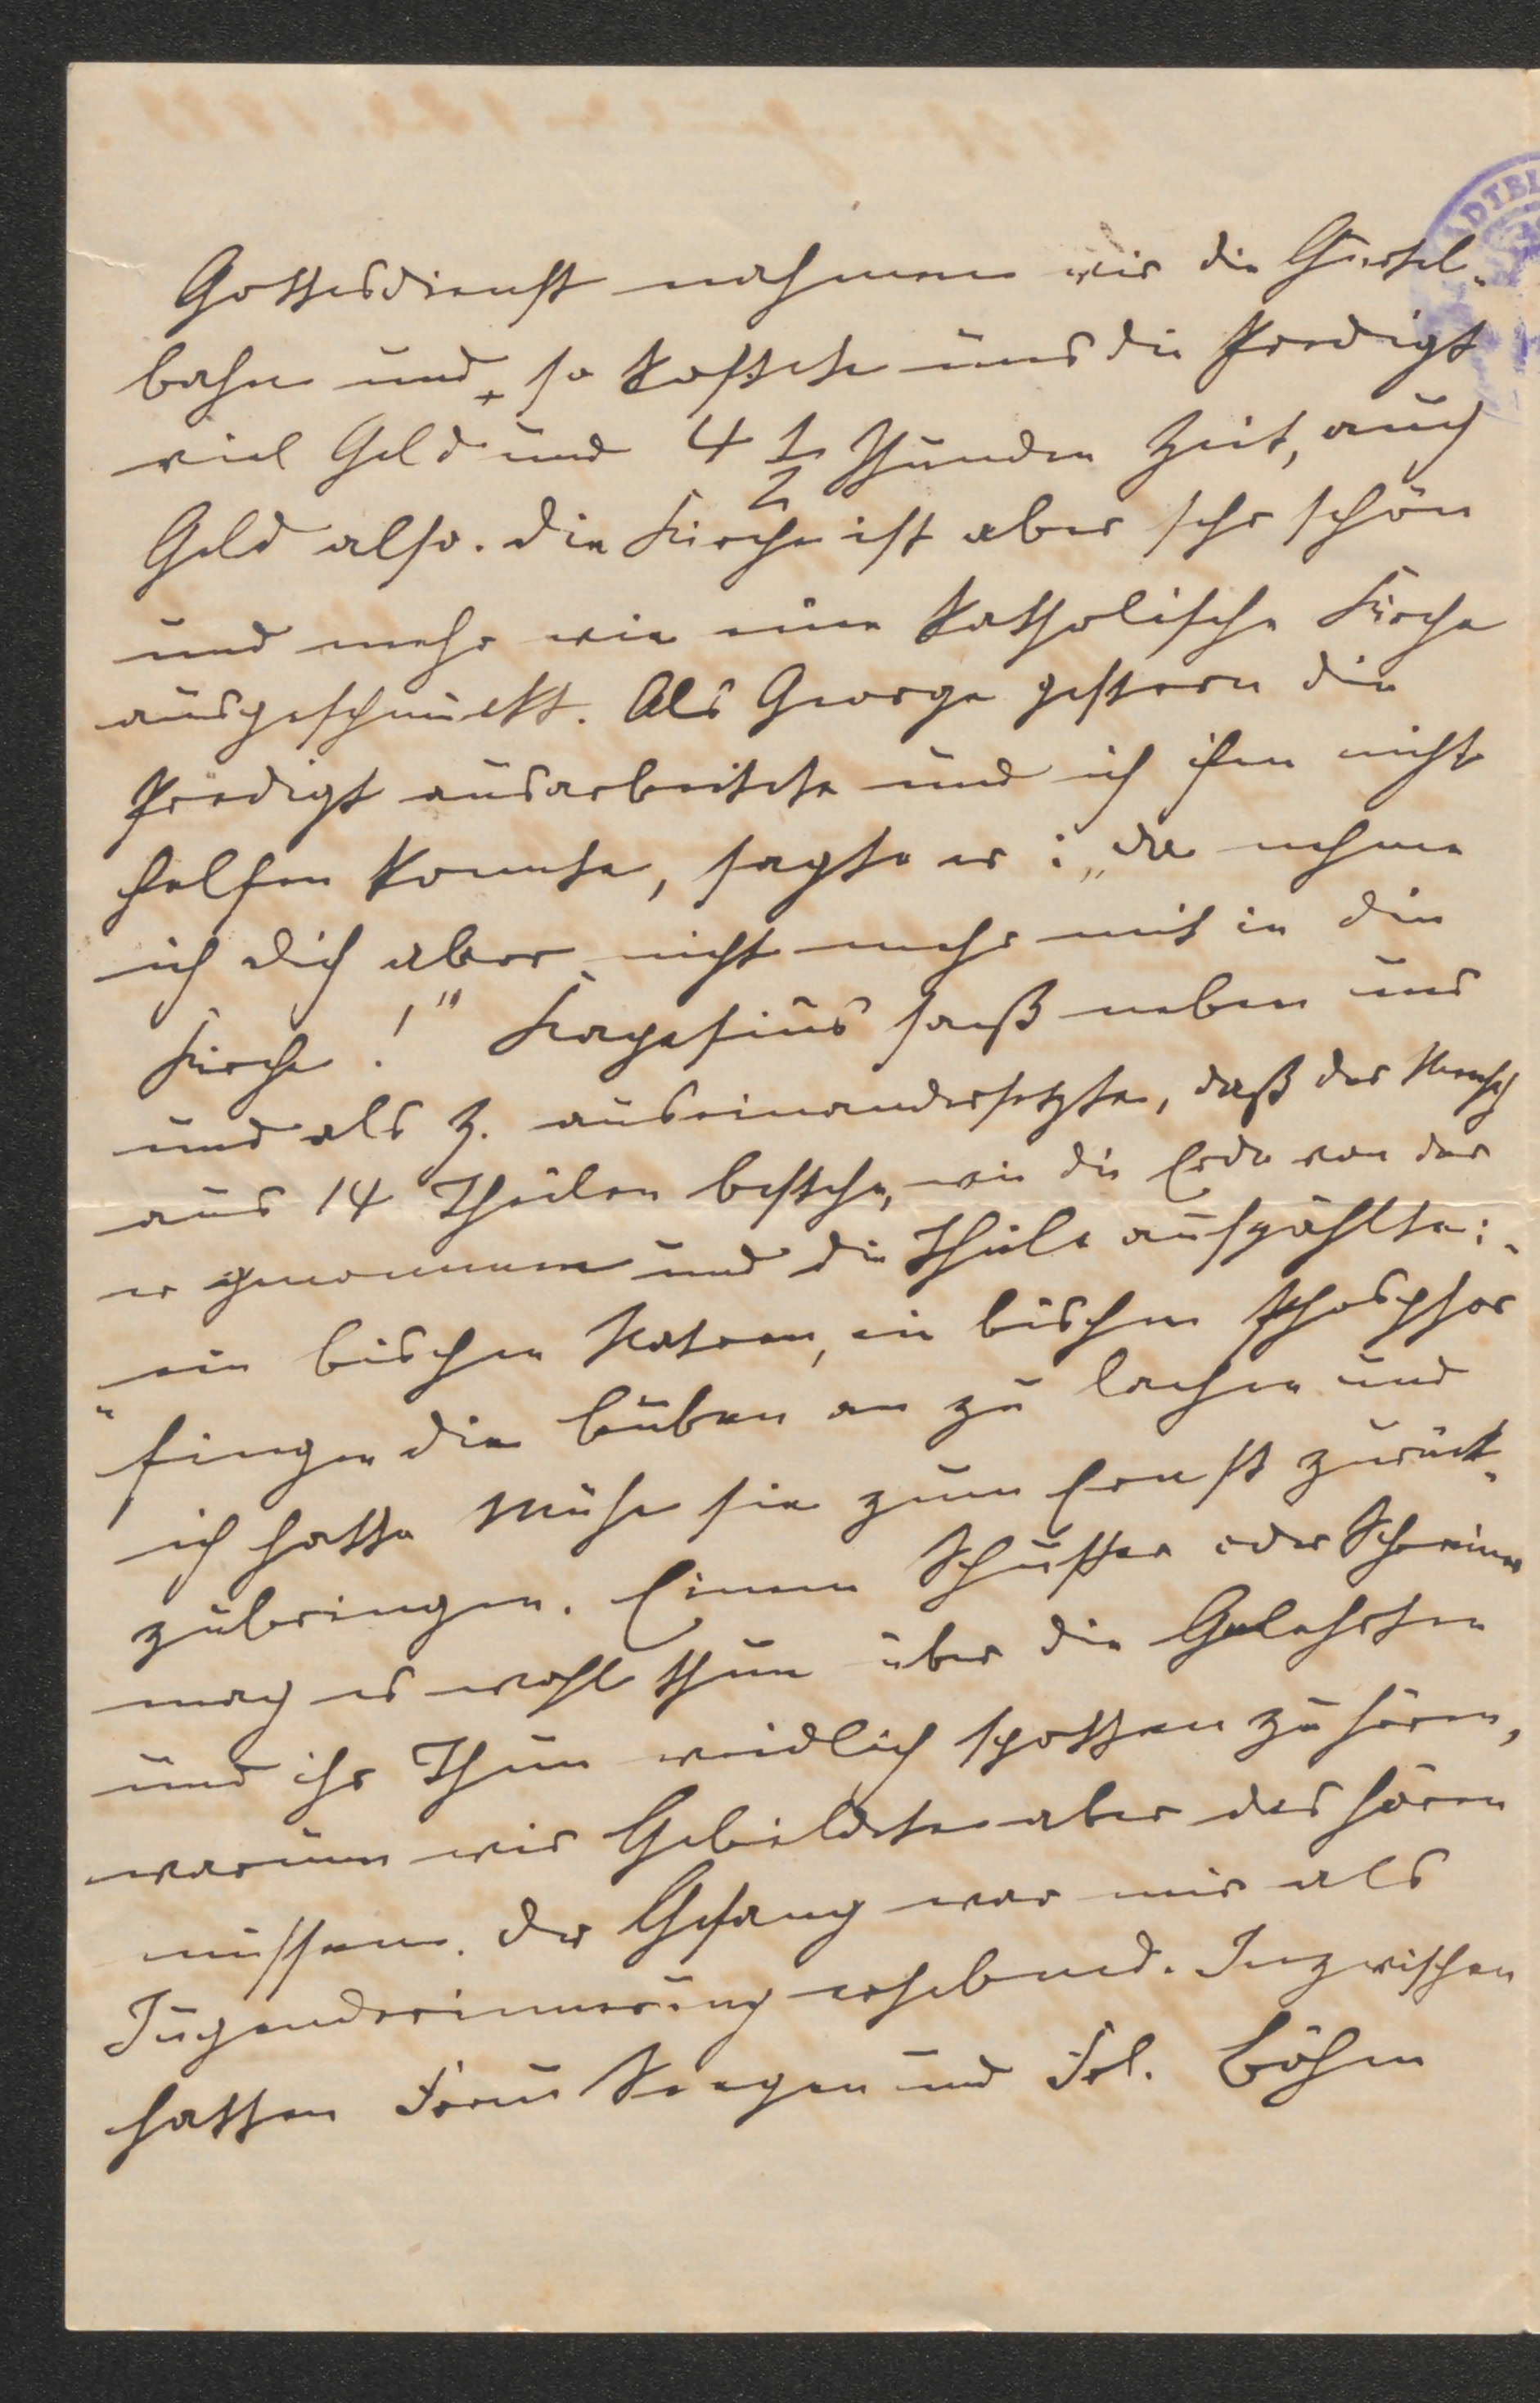 Gottesdienst nahmen wir die Gürtel-
bahn und so kostete uns die Predigt
viel Geld und 4 1/2 Stunden Zeit, auch
Geld also. Die Kirche ist aber sehr schön
und mehr wie eine katholische Kirche
ausgeschmückt. Als George gestern die
Predigt ausarbeitete und ich ihm nicht
helfen konnte, sagte er: „da nehme
ich dich aber nicht mehr mit in die
Kirche!" Kapesius saß neben uns
und als Z. auseinandersetzte, daß der Mensch
aus 14 Theilen bestehe, wie die Erde von der
er genommen und die Theile aufzählte:
„ein bischen Natron, ein bischen Phosphor"
fingen die Buben an zu lachen und
ich hatte Mühe sie zum Ernst zurück-
zubringen. Einem Schuster oder Schreiner
mag es wohl thun über die Gelehrten
und ihr Thun weidlich spotten zu hören,
warum wir Gebildete aber das hören
müssen. Der Gesang war mir als
Jugenderinnerung erhebend. Inzwischen
hatten Frau und Frl. Böhm
ADTBI